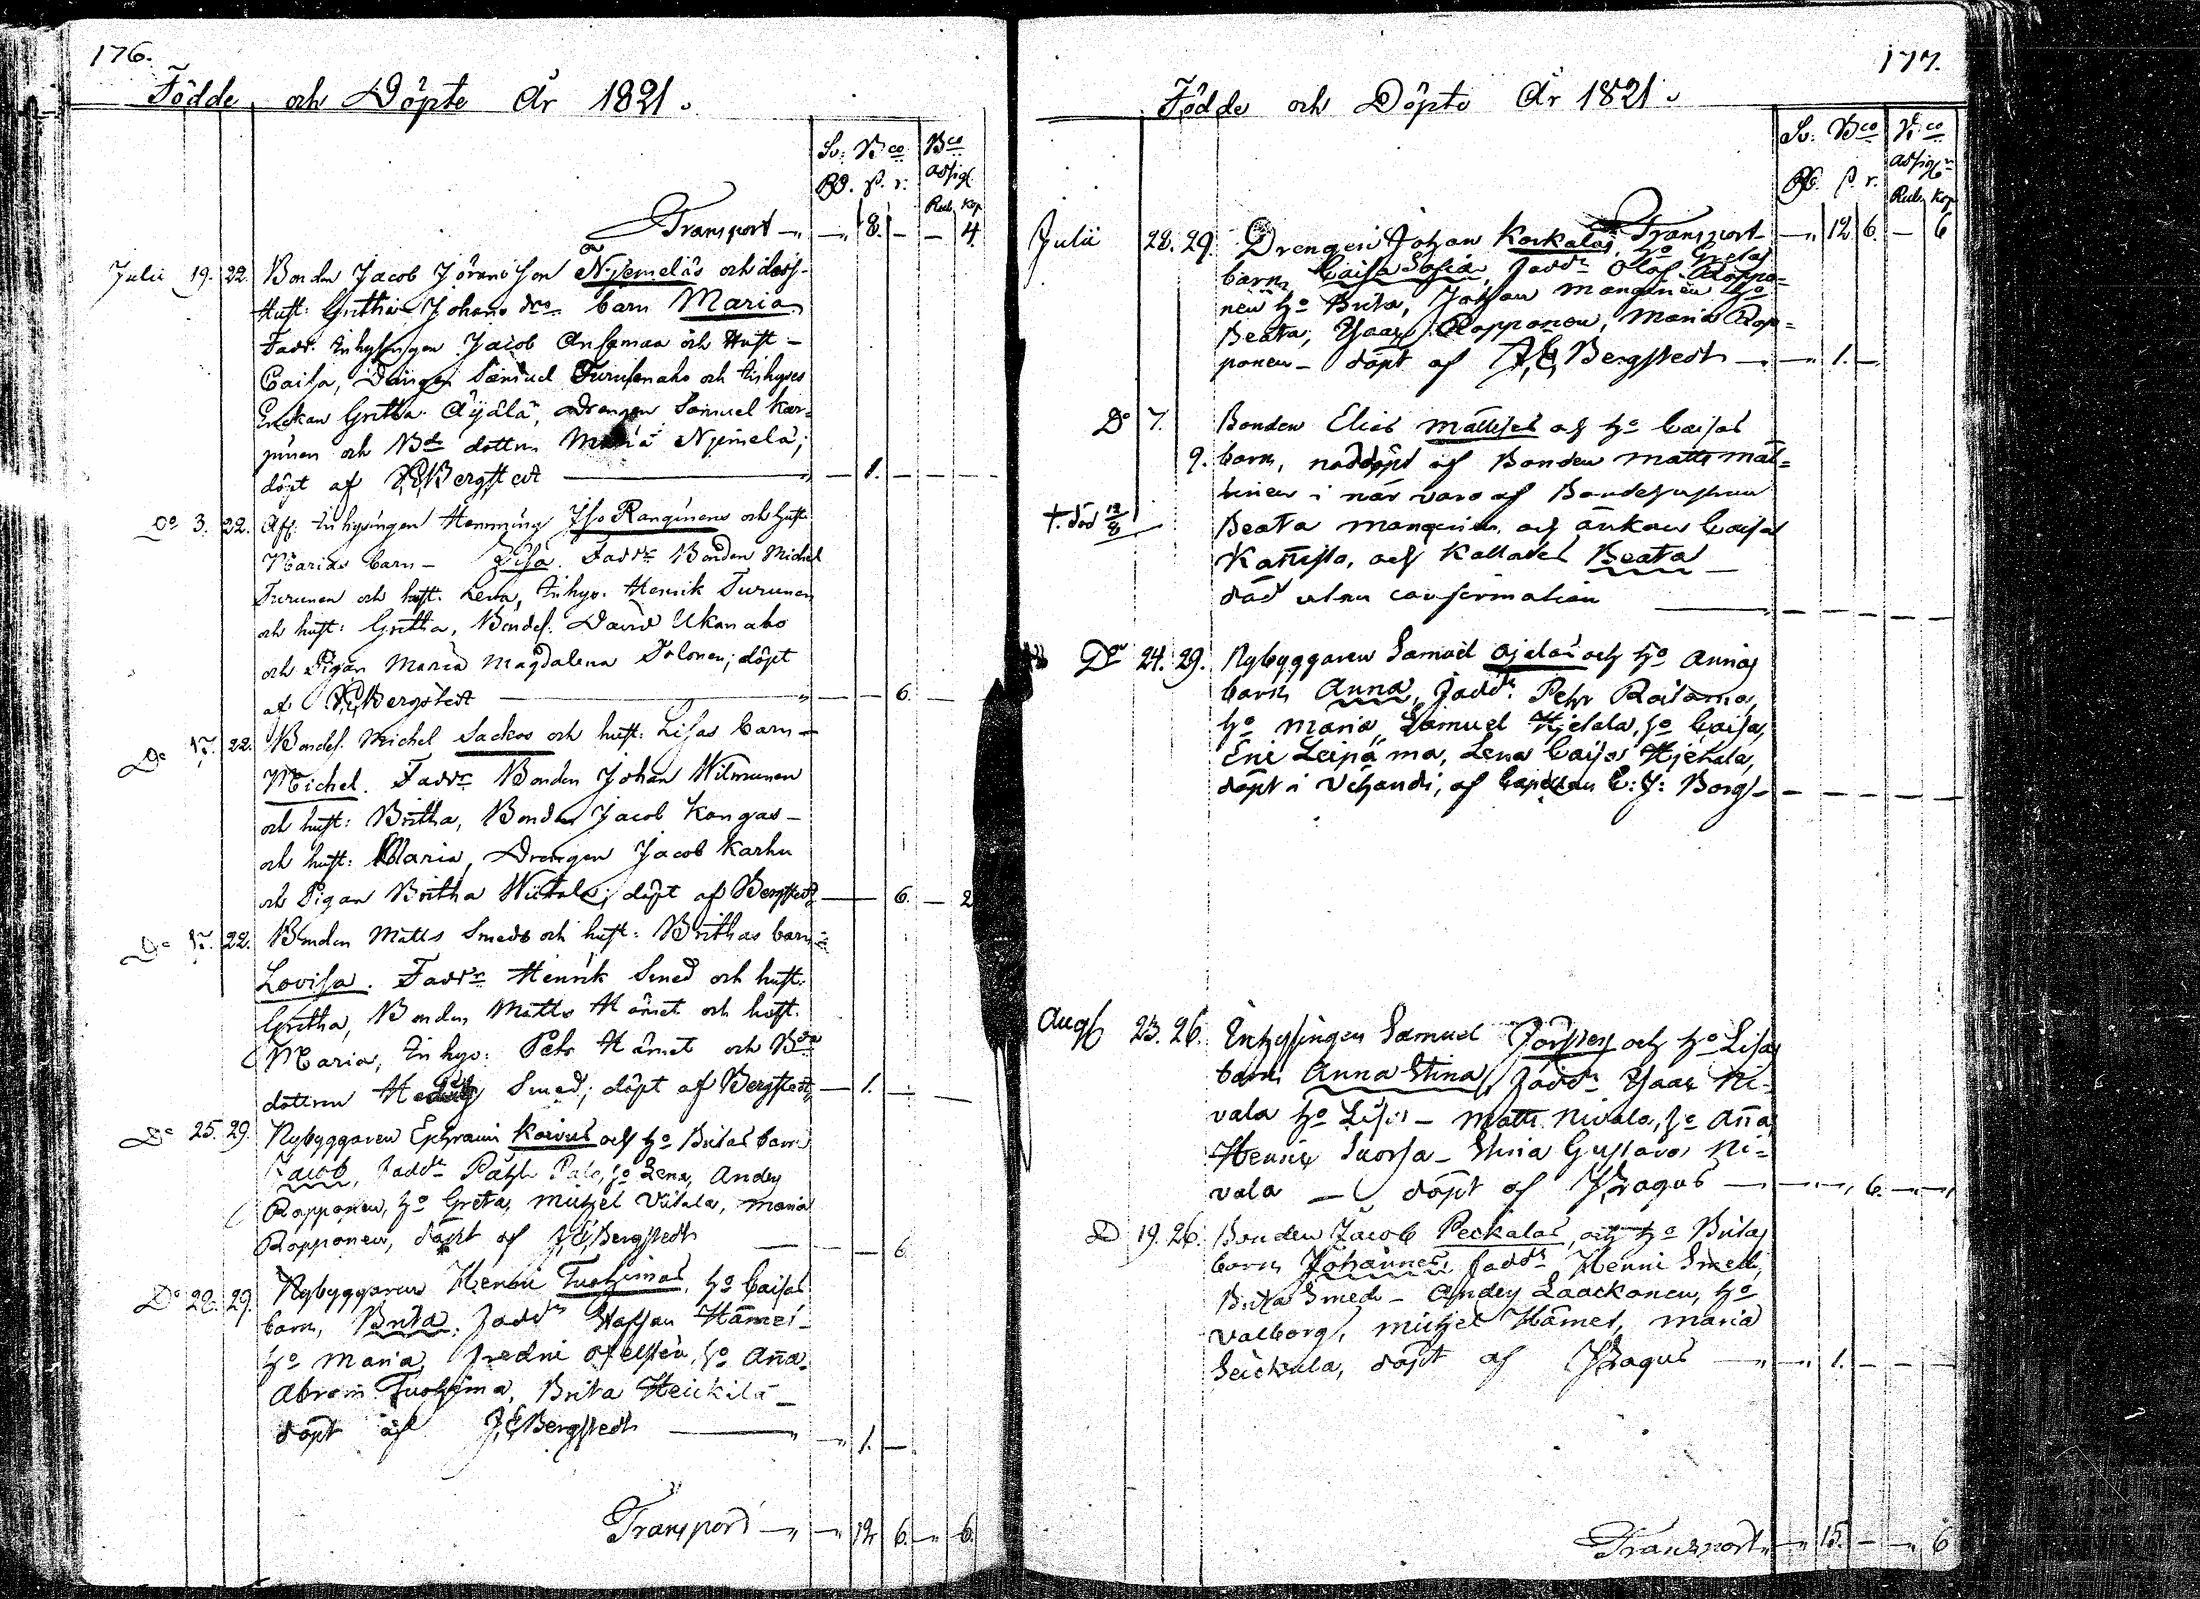 176.
Födde och Döpte År 1821.
Sv: Bco Bco
Rd. ß. r. Assigl.
Rub. Kop
Transport — — 8. — — 4.
Julii 19. 22. Bonden Jacob Jöransson Niemeläs och dess
Hust: Gretha Johans dr. barn Maria
Fadd. Inhysingen Jacob Ansamaa och Hust –
Caisa, Drängen Samuel Turusenaho och Inhyses
Enckan Gretha Äÿälä, Drengen Samuel Kar=
pinen och Bde dottren Maria Niemelä;
döpt af J.E. Bergstedt — 1. — — —
Do 3. 22. Afl. Inhysingen Hemming Iso Ranginens och hust.
Marias barn – Lisa. Faddr Bonden Michel
Turunen och hust. Lena, Inhys. Henrik Turunen
och hust: Gretha, Bondes. David Ukonaho
och Pigan Maria Magdalena Tolonen; döpt
af J.E. Bergstedt — — — 6. —
Do 17. 22. Bondes. Michel Sackos och hust: Lisas barn –
Michel. Faddr Bonden Johan Wilmunen
och hust: Britha, Bonden Jacob Kangas –
och hust: Maria, Drengen Jacob Karhu
och Pigan Britha Witala; döpt af Bergstedt — — 6. — 2
Do 17. 22. Bonden Matts Smeds och hust: Brithas barn
Lovisa. Faddr Henrik Smed och hust:
Gretha, Bonden Matts Hämet och hust.
Maria, Inhys: Pehr Hämet och Bde
dottren Hedvig Smed; döpt af Bergstedt — 1. — —
Do 25. 29. Nybyggaren Ephraim Korvus och ho Britas barn
Jacob, Faddr Påhl Palo, ho Lena, Anders
Ropponen, ho Greta, Michel Vitala, Maria
Ropponen, döpt af J.E. Bergstedt — — 6.
Do 28. 29. Nybyggaren Henric Tuohimas, ho Caisas
barn, Brita, Faddr Staffan Hämet –
ho Maria, Fredric ho Anna
Abram Tuohima, Brita Heickilä –
döpt af J.E. Bergstedt — 1. —
Transport — — 12 6. — 6.
177.
Födde och Döpte År 1821.
Sv: Bco Bco
Rd. ß. r. Assign
Rub. Kop
Transport — 12 6. — 6
Julii 28. 29. Drengen Johan Korkalas, ho Gretas
barn, Caisa Sofia, Faddr Olof Roppo=
nen ho Brita, Johan Manginen ho
Beata, Isaac Ropponen, Maria Rop=
ponen – döpt af J.E. Bergstedt — — 1. —
Do 7. Bonden Elias Mattises och ho Caisas
9. barn, nöddöpt af Bonden Matts Mat=
tinen i när varo af Bondehustrun
†. död 12/8 Beata Manginen och änkan Caisa
och kallades Beata –
död utan confirmation — — — —
Do 24. 29. Nybyggaren Samuel Ojelas och ho Annas
barn Anna, Faddr Pehr Raitama,
ho Maria, Samuel Hjetala, ho Caisa,
Eric Leipäma, Lena Caisa Hjetala,
döpt i Vihandi, af Capellan C: J: Borg — — — —
Aug 23. 26. Inhysingen Samuel och ho Lisas
barn Anna Stina, Faddr Isaac Ni-
vala ho Lisa – Matts Nivala, ho Anna
Henric Suorsa – Stina Gustava Ni=
vala — döpt af J. Zagus — — — 6. — —
D 19. 26. Bonden Jacob Peckalas, och ho Britas
barn Johannes, Faddr Henric Smed,
Brita Smed – Anders Laackonen, ho
Valborg, Michel Hämet, Maria
Seickula, döpt af J. Zagus — — 1. — —
Transport — — 15. — — 6